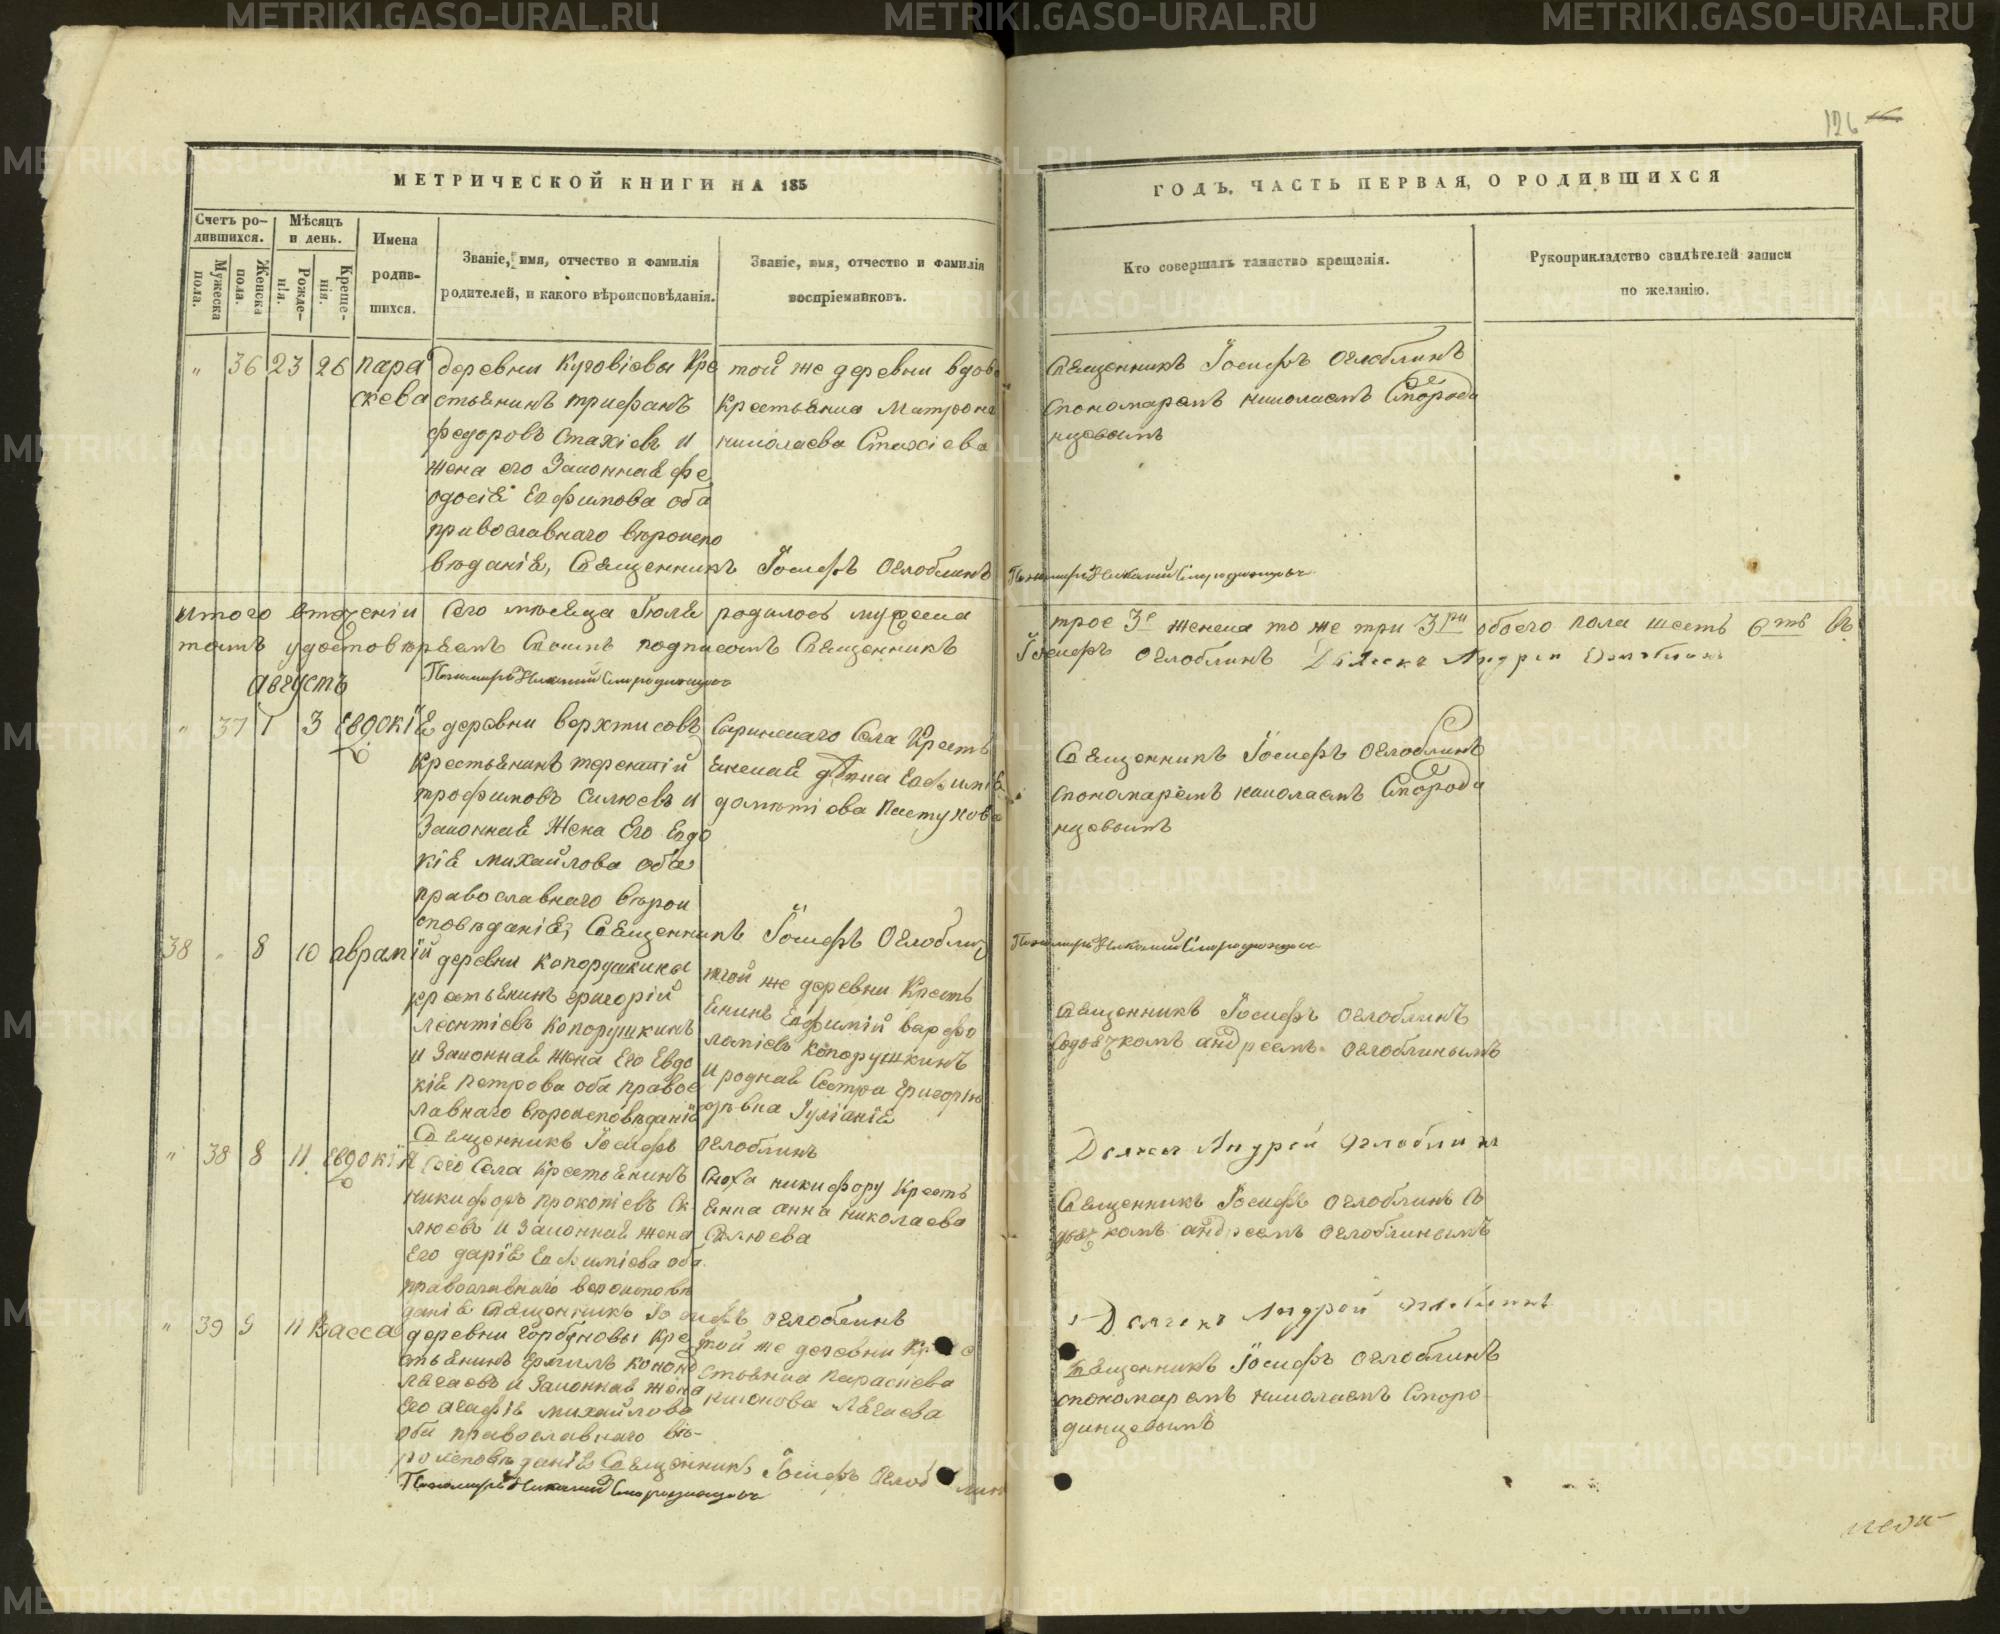 126
МЕТРИЧЕСКОЙ КНИГИ НА 185
ГОДЪ, ЧАСТЬ ПЕРВАЯ, О РОДИВШИХСЯ
Счетъ ро-
дившихся.
Мужеска пола.
Женска пола.
Мѣсяцъ
и день.
Рожде-
нія.
Креще-
нія.
Имена
родив-
шихся.
Званіе, имя, отчество и фамилія
родителей, и какого вѣроисповѣданія.
Званіе, имя, отчество и фамилія
воспріемниковъ.
Кто совершалъ таинство крещенія.
Рукоприкладство свидѣтелей записи
по желанію.
" 36 23 26 пара
скева
деревни Куговіевы Кре
стьянинъ трифанъ
федоровъ Стахіевъ и
жена его Законная фе
одосія Евфимова оба
православнаго вѣроиспо
вѣданія, Священникъ Іосифъ Оглоблинъ
той же деревни вдов
Крестьянка Матрона
николаева Стахіева
Священникъ Іосифъ Оглоблинъ
Спономаремъ николаемъ Смороди
нцовымъ
итого втеченіи Сего мѣсяца Іюля родилось мужеска
трое 3е женска то же три 3ри обоего пола шесть 6ть въ
томъ удостовѣряемъ Своимъ подписомъ Священникъ
Іосифъ Оглоблинъ Дьячекъ Андрей Оглоблинъ
августъ
" 37 1 3 Евдокія
деревни верхтисовъ
крестьянинъ терентій
трофимовъ Силюевъ и
Законная Жена Его Евдо
кія михайлова оба
православнаго вѣрои
сповѣданія, Священникъ Іосифъ Оглоблин
Саринскаго Села Кресть
янская дѣвка Евфимія
дометіева Пастухова
Священникъ Іосифъ Оглоблинъ
Спономаремъ николаемъ Смороди
нцовымъ
38 " 8 10 аврамій
деревни копорушкины
крестьянинъ григорій
леонтіевъ копорушкинъ
и Законная жена Его Евдо
кія Петрова оба правос
лавнаго вѣроисповѣданія
Священникъ Іосифъ Оглоблинъ
той же деревни Кресть
янинъ Евфимій варфо
ламіевъ копорушкинъ
и родная Сестра григорію
дѣвка Іуліанія
Священникъ Іосифъ Оглоблинъ
Содьячкомъ андреемъ Оглоблинымъ
Дьячекъ Андрей Оглоблинъ
" 38 8 11 Евдокія
Сего Села Крестьянинъ
никифоръ прокопіевъ Си
люевъ и Законная жена
Его дарія Евфиміева оба
православнаго вероисповѣ
данія Священникъ Іосифъ Оглоблинъ
Сноха никифору Кресть
янка анна николаева
Силюева
Священникъ Іосифъ Оглоблинъ Съ
дьячкомъ андреемъ Оглоблинымъ
Дьячекъ Андрей Оглоблинъ
" 39 9 11 Васса
деревни горбуновы Кре
стьянинъ ермилъ конон
лягаевъ и Законная жена
Его агафія михайлова
оба православнаго вѣ-
роисповѣданія Священникъ Іосифъ Оглоблин
той же деревни Кре с
стьянка Параскева
кионова Лягаева
Священникъ Іосифъ Оглоблинъ
спономаремъ николаемъ Сморо
динцевымъ